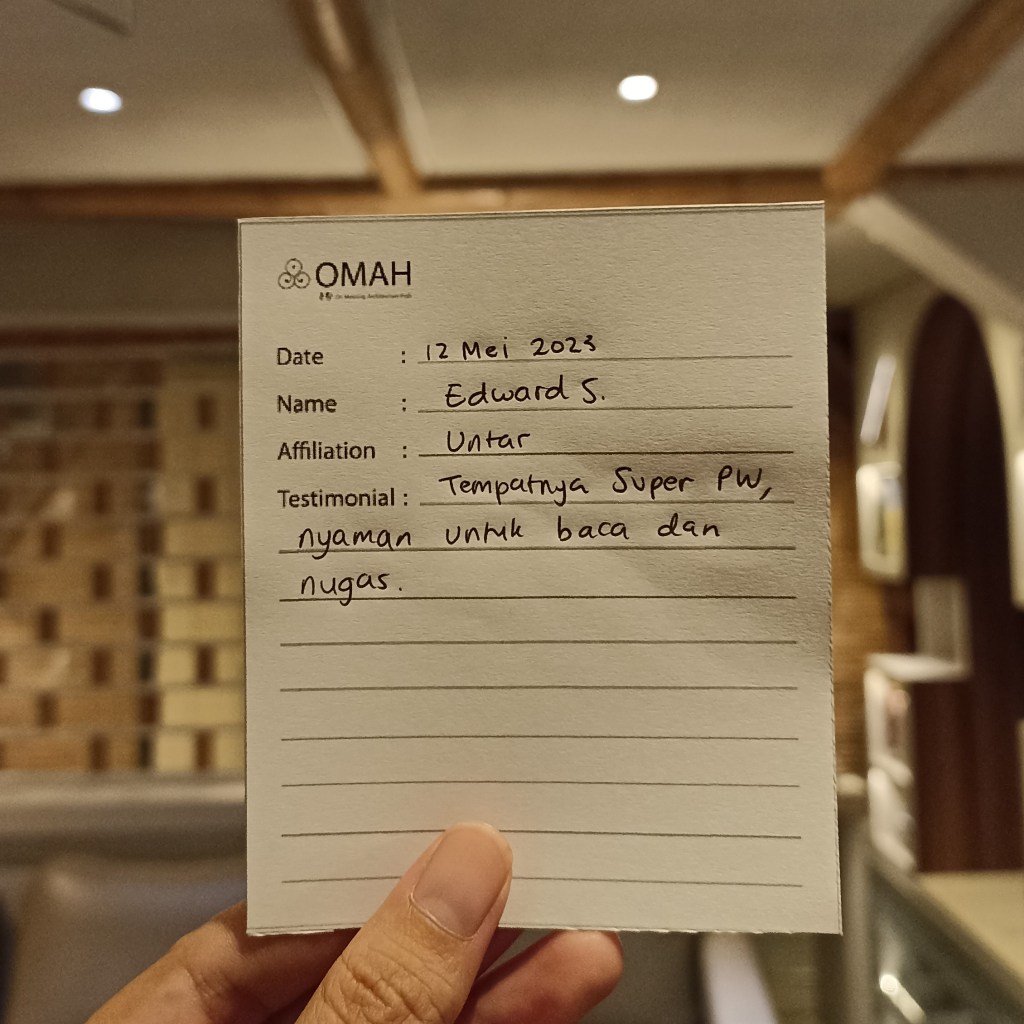 OMAH
Date : 12 Mei 2023
Name : Edward S.
Affiliation : Untar
Testimonial : Tempatnya Super PW,
nyaman untuk baca dan
nugas.